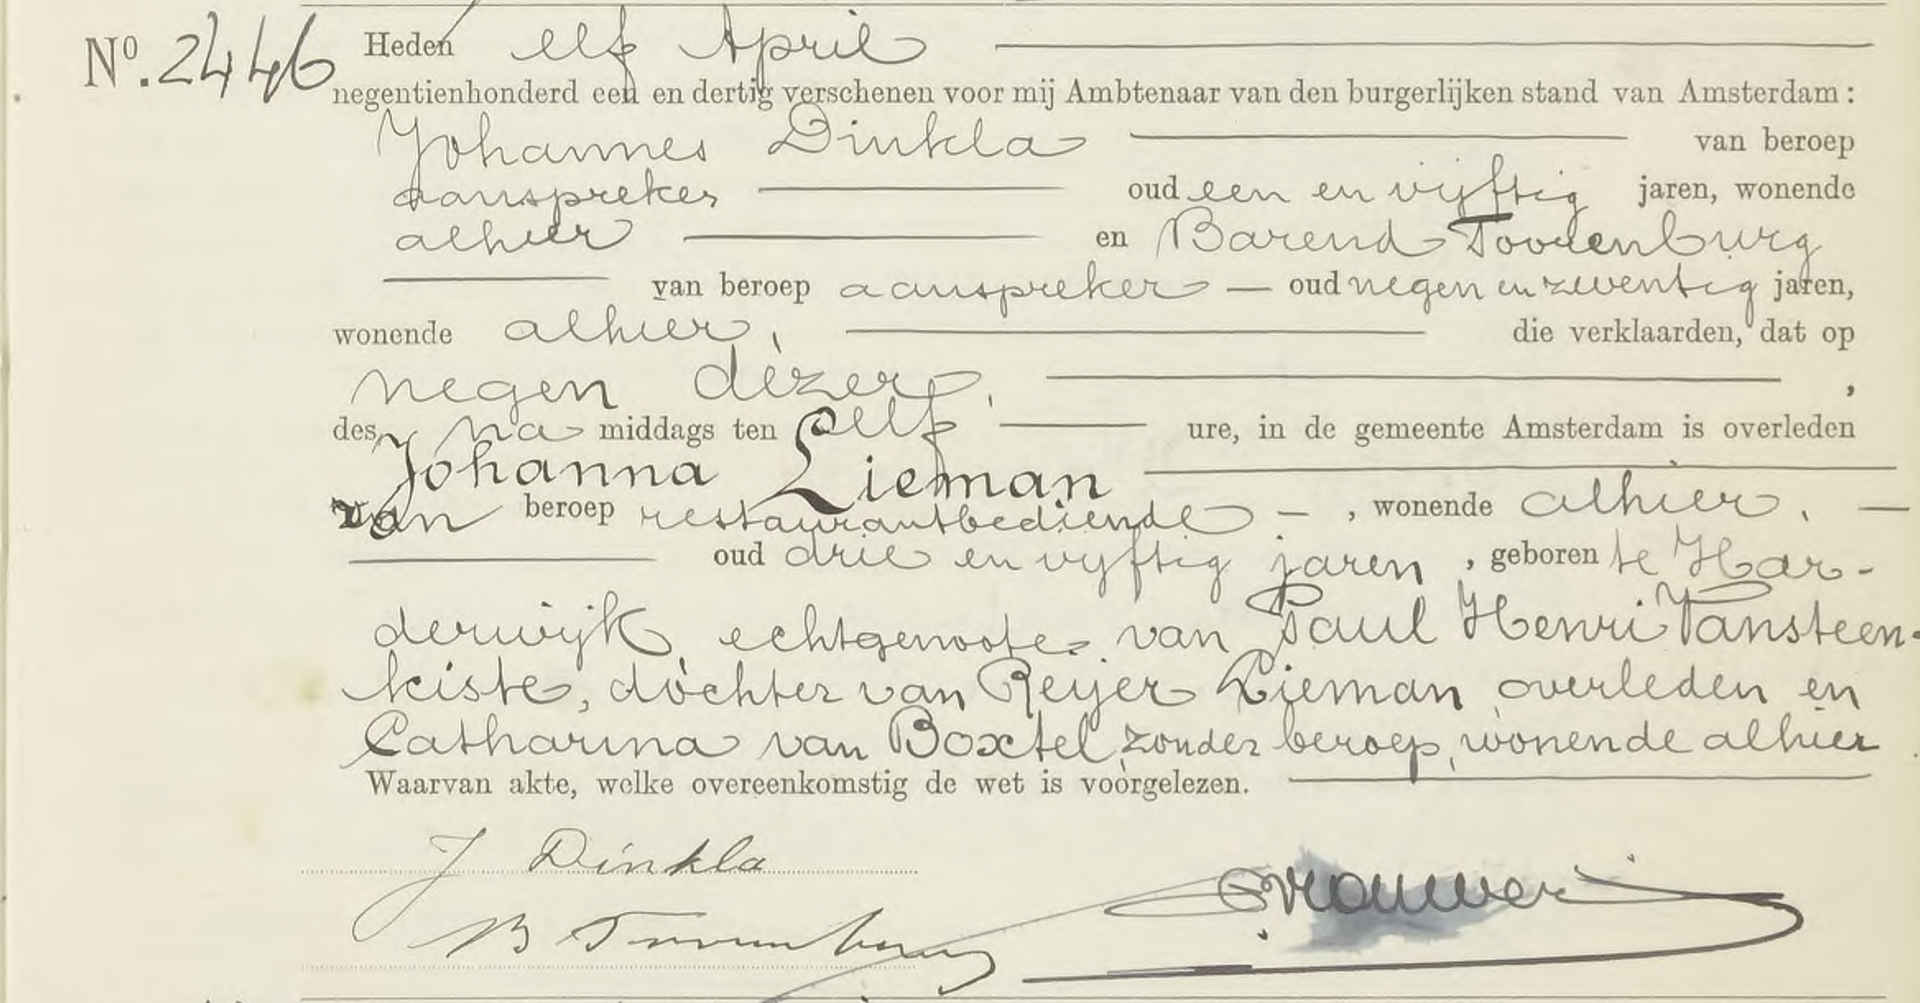 No. 2446 Heden elf April
negentienhonderd een en dertig verschenen voor mij Ambtenaar van den burgerlijken stand van Amsterdam:
Johannes Dinkla van beroep
aanspreker oud een en vijftig jaren, wonende
alhier en Barend Toorenburg
van beroep aanspreker — oud negen en zeventig jaren,
wonende alhier, die verklaarden, dat op
negen dezer, ,
des na middags ten elf ure, in de gemeente Amsterdam is overleden
Johanna Lieman
van beroep restaurantbediende — , wonende alhier, —
oud drie en vyftig jaren , geboren te Har-
derwijk, echtgenoote van Paul Henri Vansteen-
kiste, dochter van Reijer Lieman, overleden en
Catharina van Boxtel, zonder beroep, wonende alhier.
Waarvan akte, welke overeenkomstig de wet is voorgelezen.
J Dinkla
B Toorenburg